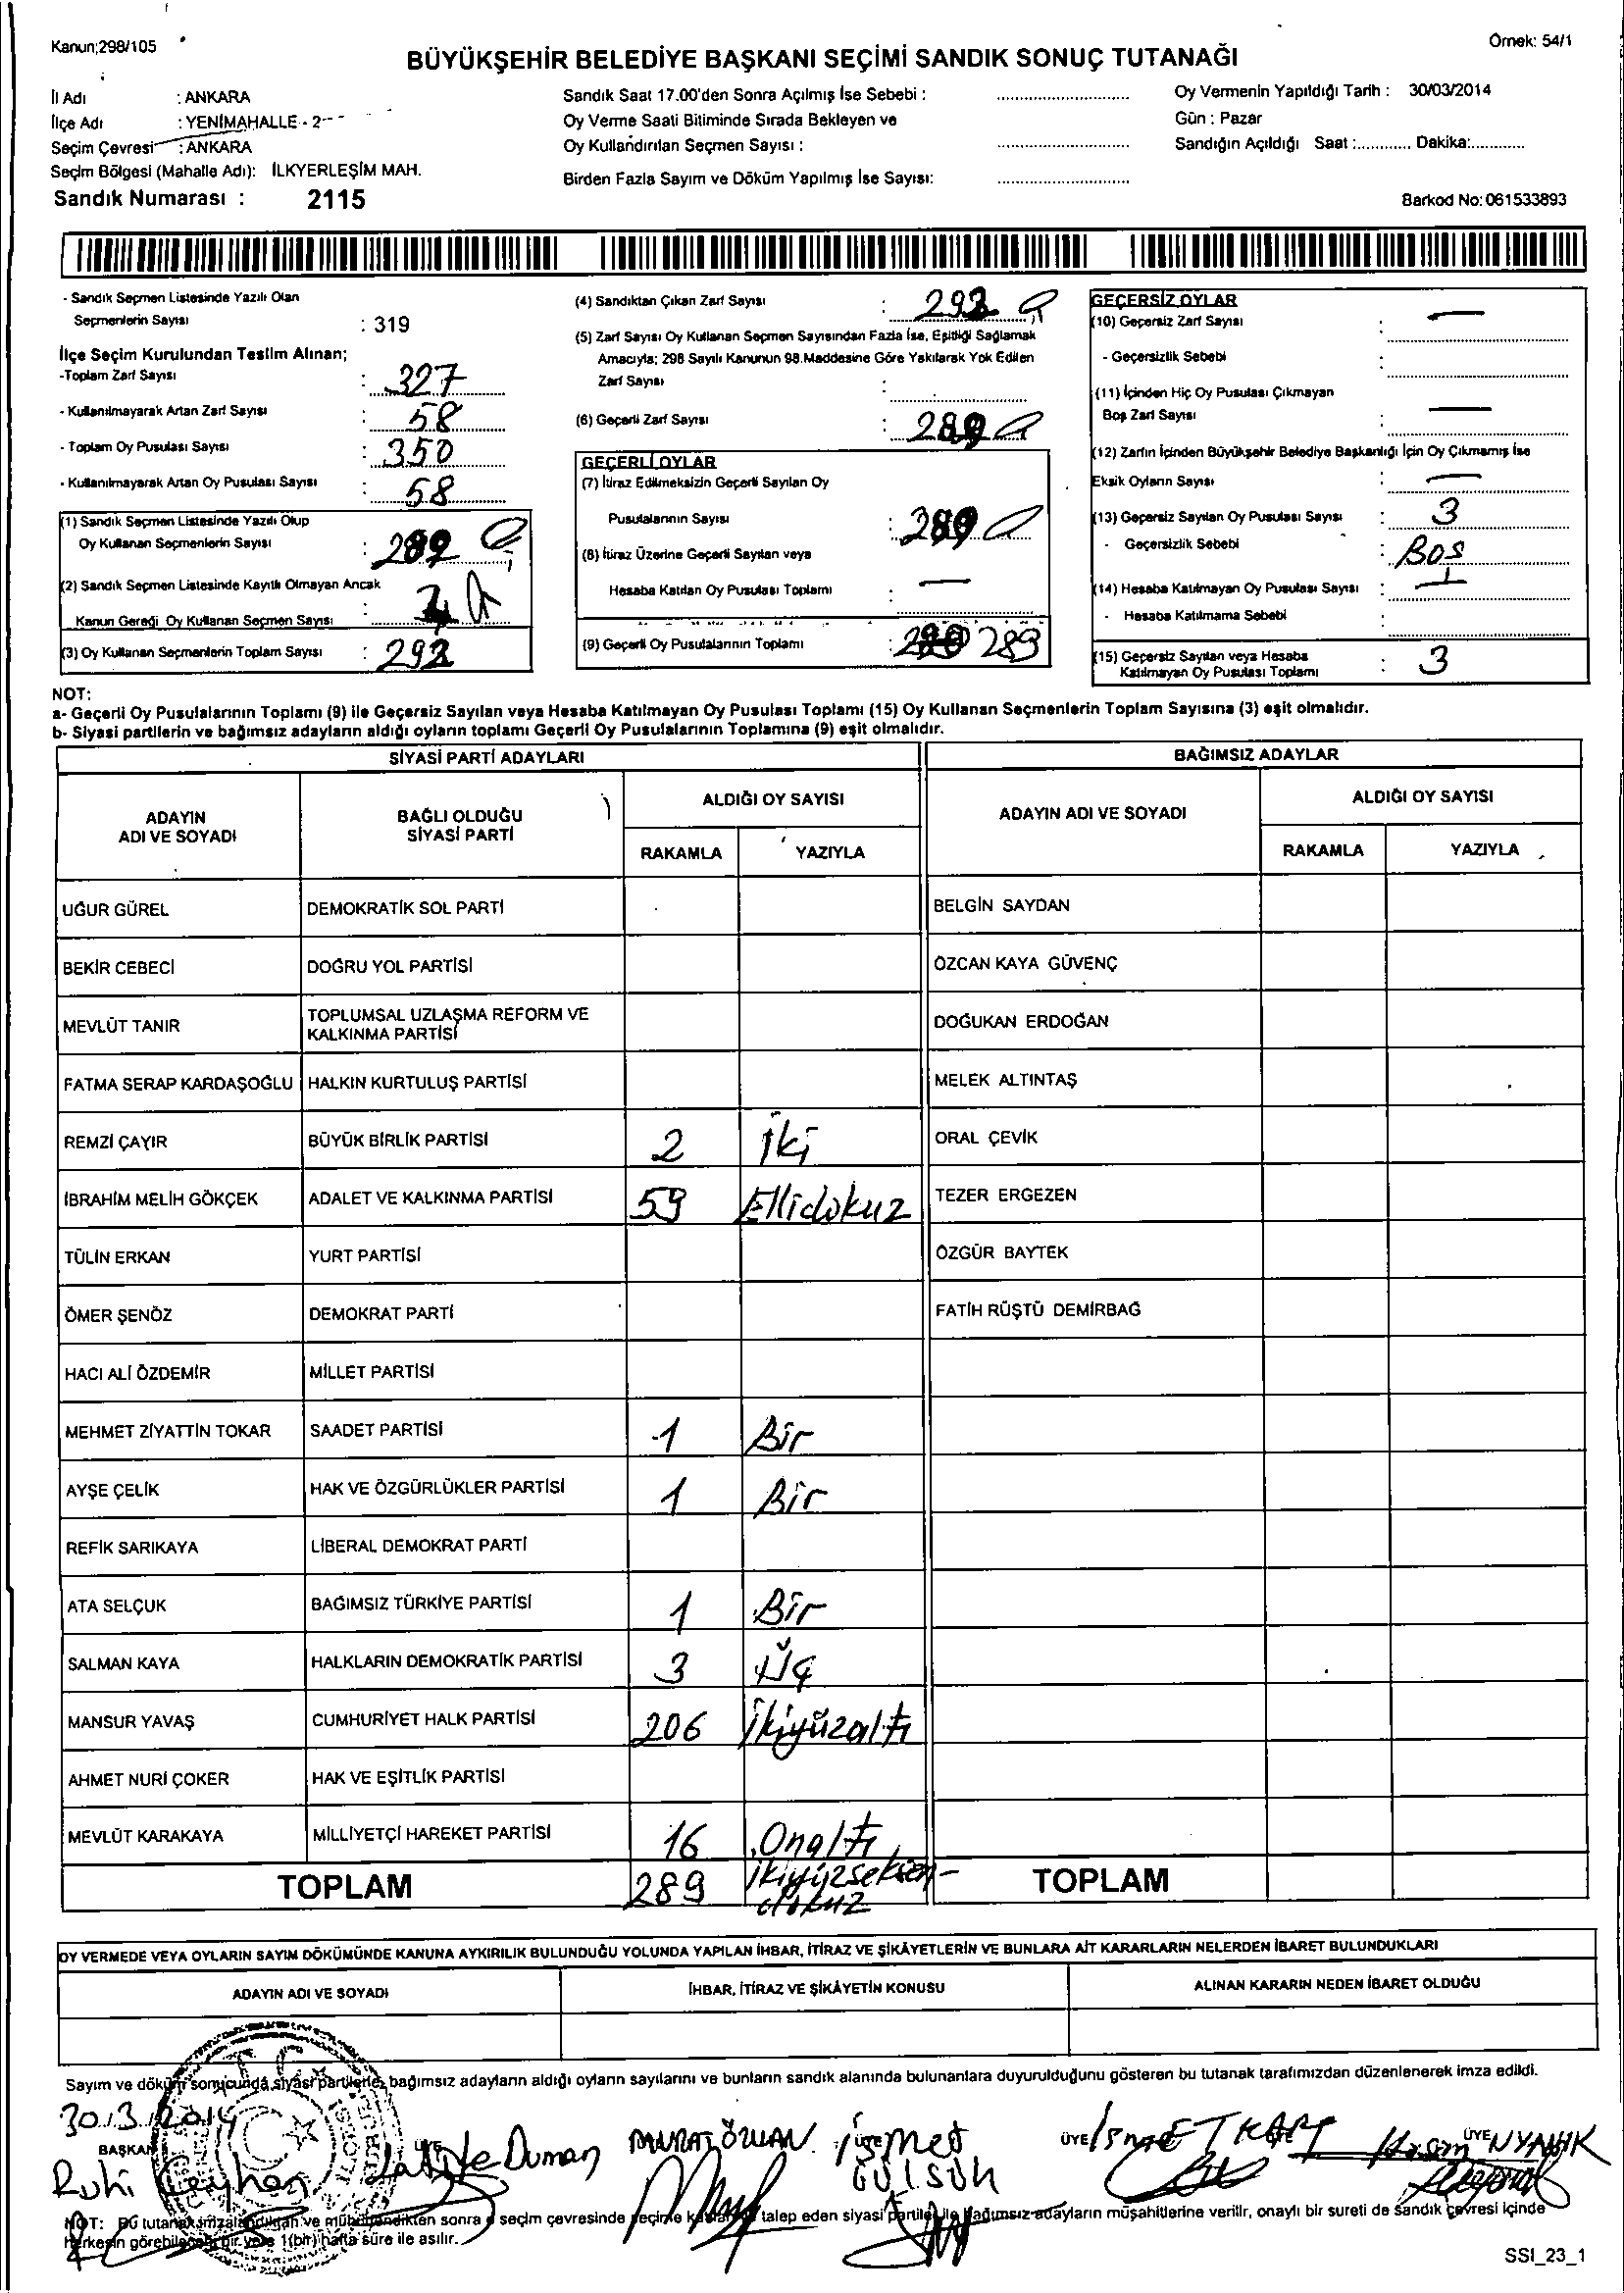 Kanun;298/105
Örnek: 54/1
BÜYÜKŞEHİR BELEDİYE BAŞKANI SEÇİMİ SANDIK SONUÇ TUTANAĞI
İl Adı : ANKARA
İlçe Adı : YENİMAHALLE - 2
Seçim Çevresi : ANKARA
Seçim Bölgesi (Mahalle Adı): İLKYERLEŞİM MAH.
Sandık Numarası : 2115
Sandık Saat 17.00'den Sonra Açılmış İse Sebebi :
Oy Verme Saati Bitiminde Sırada Bekleyen ve
Oy Kullandırılan Seçmen Sayısı :
Birden Fazla Sayım ve Döküm Yapılmış İse Sayısı:
Oy Vermenin Yapıldığı Tarih : 30/03/2014
Gün : Pazar
Sandığın Açıldığı Saat :............ Dakika:............
Barkod No: 061533893
- Sandık Seçmen Listesinde Yazılı Olan
Seçmenlerin Sayısı : 319
İlçe Seçim Kurulundan Teslim Alınan;
-Toplam Zarf Sayısı : 327
- Kullanılmayarak Artan Zarf Sayısı : 58
- Toplam Oy Pusulası Sayısı : 350
- Kullanılmayarak Artan Oy Pusulası Sayısı : 58
(1) Sandık Seçmen Listesinde Yazılı Olup
Oy Kullanan Seçmenlerin Sayısı :
(2) Sandık Seçmen Listesinde Kayıtlı Olmayan Ancak
Kanun Gereği Oy Kullanan Seçmen Sayısı :
(3) Oy Kullanan Seçmenlerin Toplam Sayısı : 292
(4) Sandıktan Çıkan Zarf Sayısı : 292
(5) Zarf Sayısı Oy Kullanan Seçmen Sayısından Fazla İse, Eşitliği Sağlamak
Amacıyla; 298 Sayılı Kanunun 98.Maddesine Göre Yakılarak Yok Edilen
Zarf Sayısı :
(6) Geçerli Zarf Sayısı : 289
GEÇERLİ OYLAR
(7) İtiraz Edilmeksizin Geçerli Sayılan Oy
Pusulalarının Sayısı : 289
(8) İtiraz Üzerine Geçerli Sayılan veya
Hesaba Katılan Oy Pusulası Toplamı : —
(9) Geçerli Oy Pusulalarının Toplamı : 289
GEÇERSİZ OYLAR
(10) Geçersiz Zarf Sayısı : —
- Geçersizlik Sebebi :
(11) İçinden Hiç Oy Pusulası Çıkmayan
Boş Zarf Sayısı : —
(12) Zarfın İçinden Büyükşehir Belediye Başkanlığı İçin Oy Çıkmamış İse
Eksik Oyların Sayısı : —
(13) Geçersiz Sayılan Oy Pusulası Sayısı : 3
- Geçersizlik Sebebi : BOŞ
(14) Hesaba Katılmayan Oy Pusulası Sayısı : —
- Hesaba Katılmama Sebebi :
(15) Geçersiz Sayılan veya Hesaba
Katılmayan Oy Pusulası Toplamı : 3
NOT:
a- Geçerli Oy Pusulalarının Toplamı (9) ile Geçersiz Sayılan veya Hesaba Katılmayan Oy Pusulası Toplamı (15) Oy Kullanan Seçmenlerin Toplam Sayısına (3) eşit olmalıdır.
b- Siyasi partilerin ve bağımsız adayların aldığı oyların toplamı Geçerli Oy Pusulalarının Toplamına (9) eşit olmalıdır.
SİYASİ PARTİ ADAYLARI
BAĞIMSIZ ADAYLAR
ADAYIN
ADI VE SOYADI
BAĞLI OLDUĞU
SİYASİ PARTİ
ALDIĞI OY SAYISI
RAKAMLA YAZIYLA
ADAYIN ADI VE SOYADI
ALDIĞI OY SAYISI
RAKAMLA YAZIYLA
UĞUR GÜREL DEMOKRATİK SOL PARTİ BELGİN SAYDAN
BEKİR CEBECİ DOĞRU YOL PARTİSİ ÖZCAN KAYA GÜVENÇ
MEVLÜT TANIR TOPLUMSAL UZLAŞMA REFORM VE
KALKINMA PARTİSİ DOĞUKAN ERDOĞAN
FATMA SERAP KARDAŞOĞLU HALKIN KURTULUŞ PARTİSİ MELEK ALTINTAŞ
REMZİ ÇAYIR BÜYÜK BİRLİK PARTİSİ 2 İki ORAL ÇEVİK
İBRAHİM MELİH GÖKÇEK ADALET VE KALKINMA PARTİSİ 59 Ellidokuz TEZER ERGEZEN
TÜLİN ERKAN YURT PARTİSİ ÖZGÜR BAYTEK
ÖMER ŞENÖZ DEMOKRAT PARTİ FATİH RÜŞTÜ DEMİRBAĞ
HACI ALİ ÖZDEMİR MİLLET PARTİSİ
MEHMET ZİYATTİN TOKAR SAADET PARTİSİ 1 Bir
AYŞE ÇELİK HAK VE ÖZGÜRLÜKLER PARTİSİ 1 Bir
REFİK SARIKAYA LİBERAL DEMOKRAT PARTİ
ATA SELÇUK BAĞIMSIZ TÜRKİYE PARTİSİ 1 Bir
SALMAN KAYA HALKLARIN DEMOKRATİK PARTİSİ 3 Üç
MANSUR YAVAŞ CUMHURİYET HALK PARTİSİ 206 İkiyüzaltı
AHMET NURİ ÇOKER HAK VE EŞİTLİK PARTİSİ
MEVLÜT KARAKAYA MİLLİYETÇİ HAREKET PARTİSİ 16 Onaltı
TOPLAM 289 İkiyüzseksen-
dokuz TOPLAM
OY VERMEDE VEYA OYLARIN SAYIM DÖKÜMÜNDE KANUNA AYKIRILIK BULUNDUĞU YOLUNDA YAPILAN İHBAR, İTİRAZ VE ŞİKÂYETLERİN VE BUNLARA AİT KARARLARIN NELERDEN İBARET BULUNDUKLARI
ADAYIN ADI VE SOYADI İHBAR, İTİRAZ VE ŞİKÂYETİN KONUSU ALINAN KARARIN NEDEN İBARET OLDUĞU
Sayım ve döküm sonucunda siyasi partilerle, bağımsız adayların aldığı oyların sayılarını ve bunların sandık alanında bulunanlara duyurulduğunu gösteren bu tutanak tarafımızdan düzenlenerek imza edildi.
30.3.2014
BAŞKAN ÜYE ÜYE ÜYE ÜYE
Ruhi Ceyhan Latife Duman MURAT ÖZKAN İsmet GÜLSÜN İSMET KART
NOT: Bu tutanak imzalandıktan ve mühürlendikten sonra seçim çevresinde seçime talep eden siyasi partiler ile bağımsız adayların müşahitlerine verilir, onaylı bir sureti de sandık çevresi içinde
herkesin görebileceği bir yere 1(bir) hafta süre ile asılır.
SSI_23_1